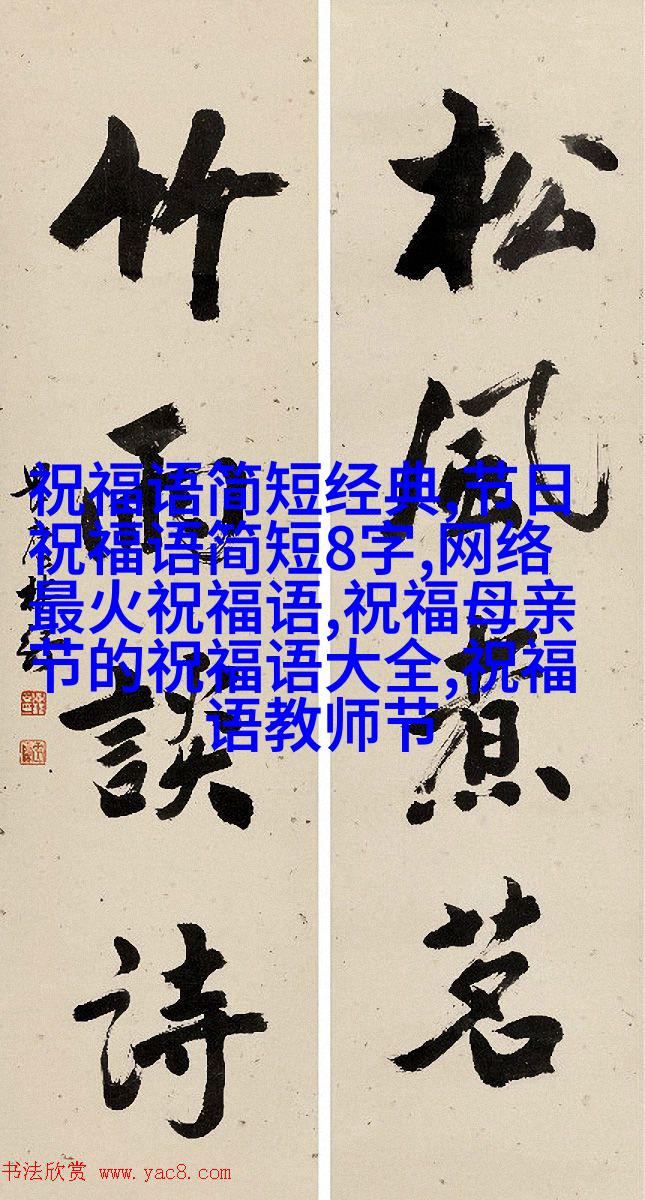 松風煮茗
竹雨談詩
祝福语简短经典,节日
祝福语简短8字,网络
最火祝福语,祝福母亲
节的祝福语大全,祝福
语教师节
书法欣赏 www.yac8.com